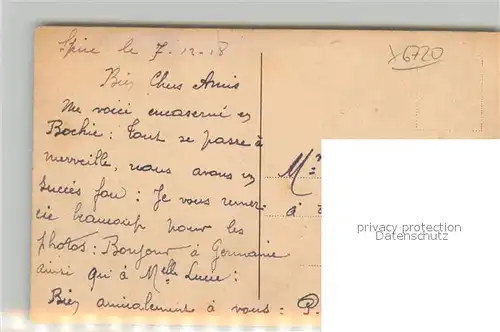 Spire le 7-12-18
x6720
Bien Chers Amis
Me voici encaserné en
Bochie: Tout se passe à
merveille, nous avons un
succès fou: Je vous remer-
cie beaucoup pour les
photos: Bonjour à Germaine
ainsi qu'à Melle Lucie:
Bien amicalement à vous:
M
à
privacy protection
Datenschutz